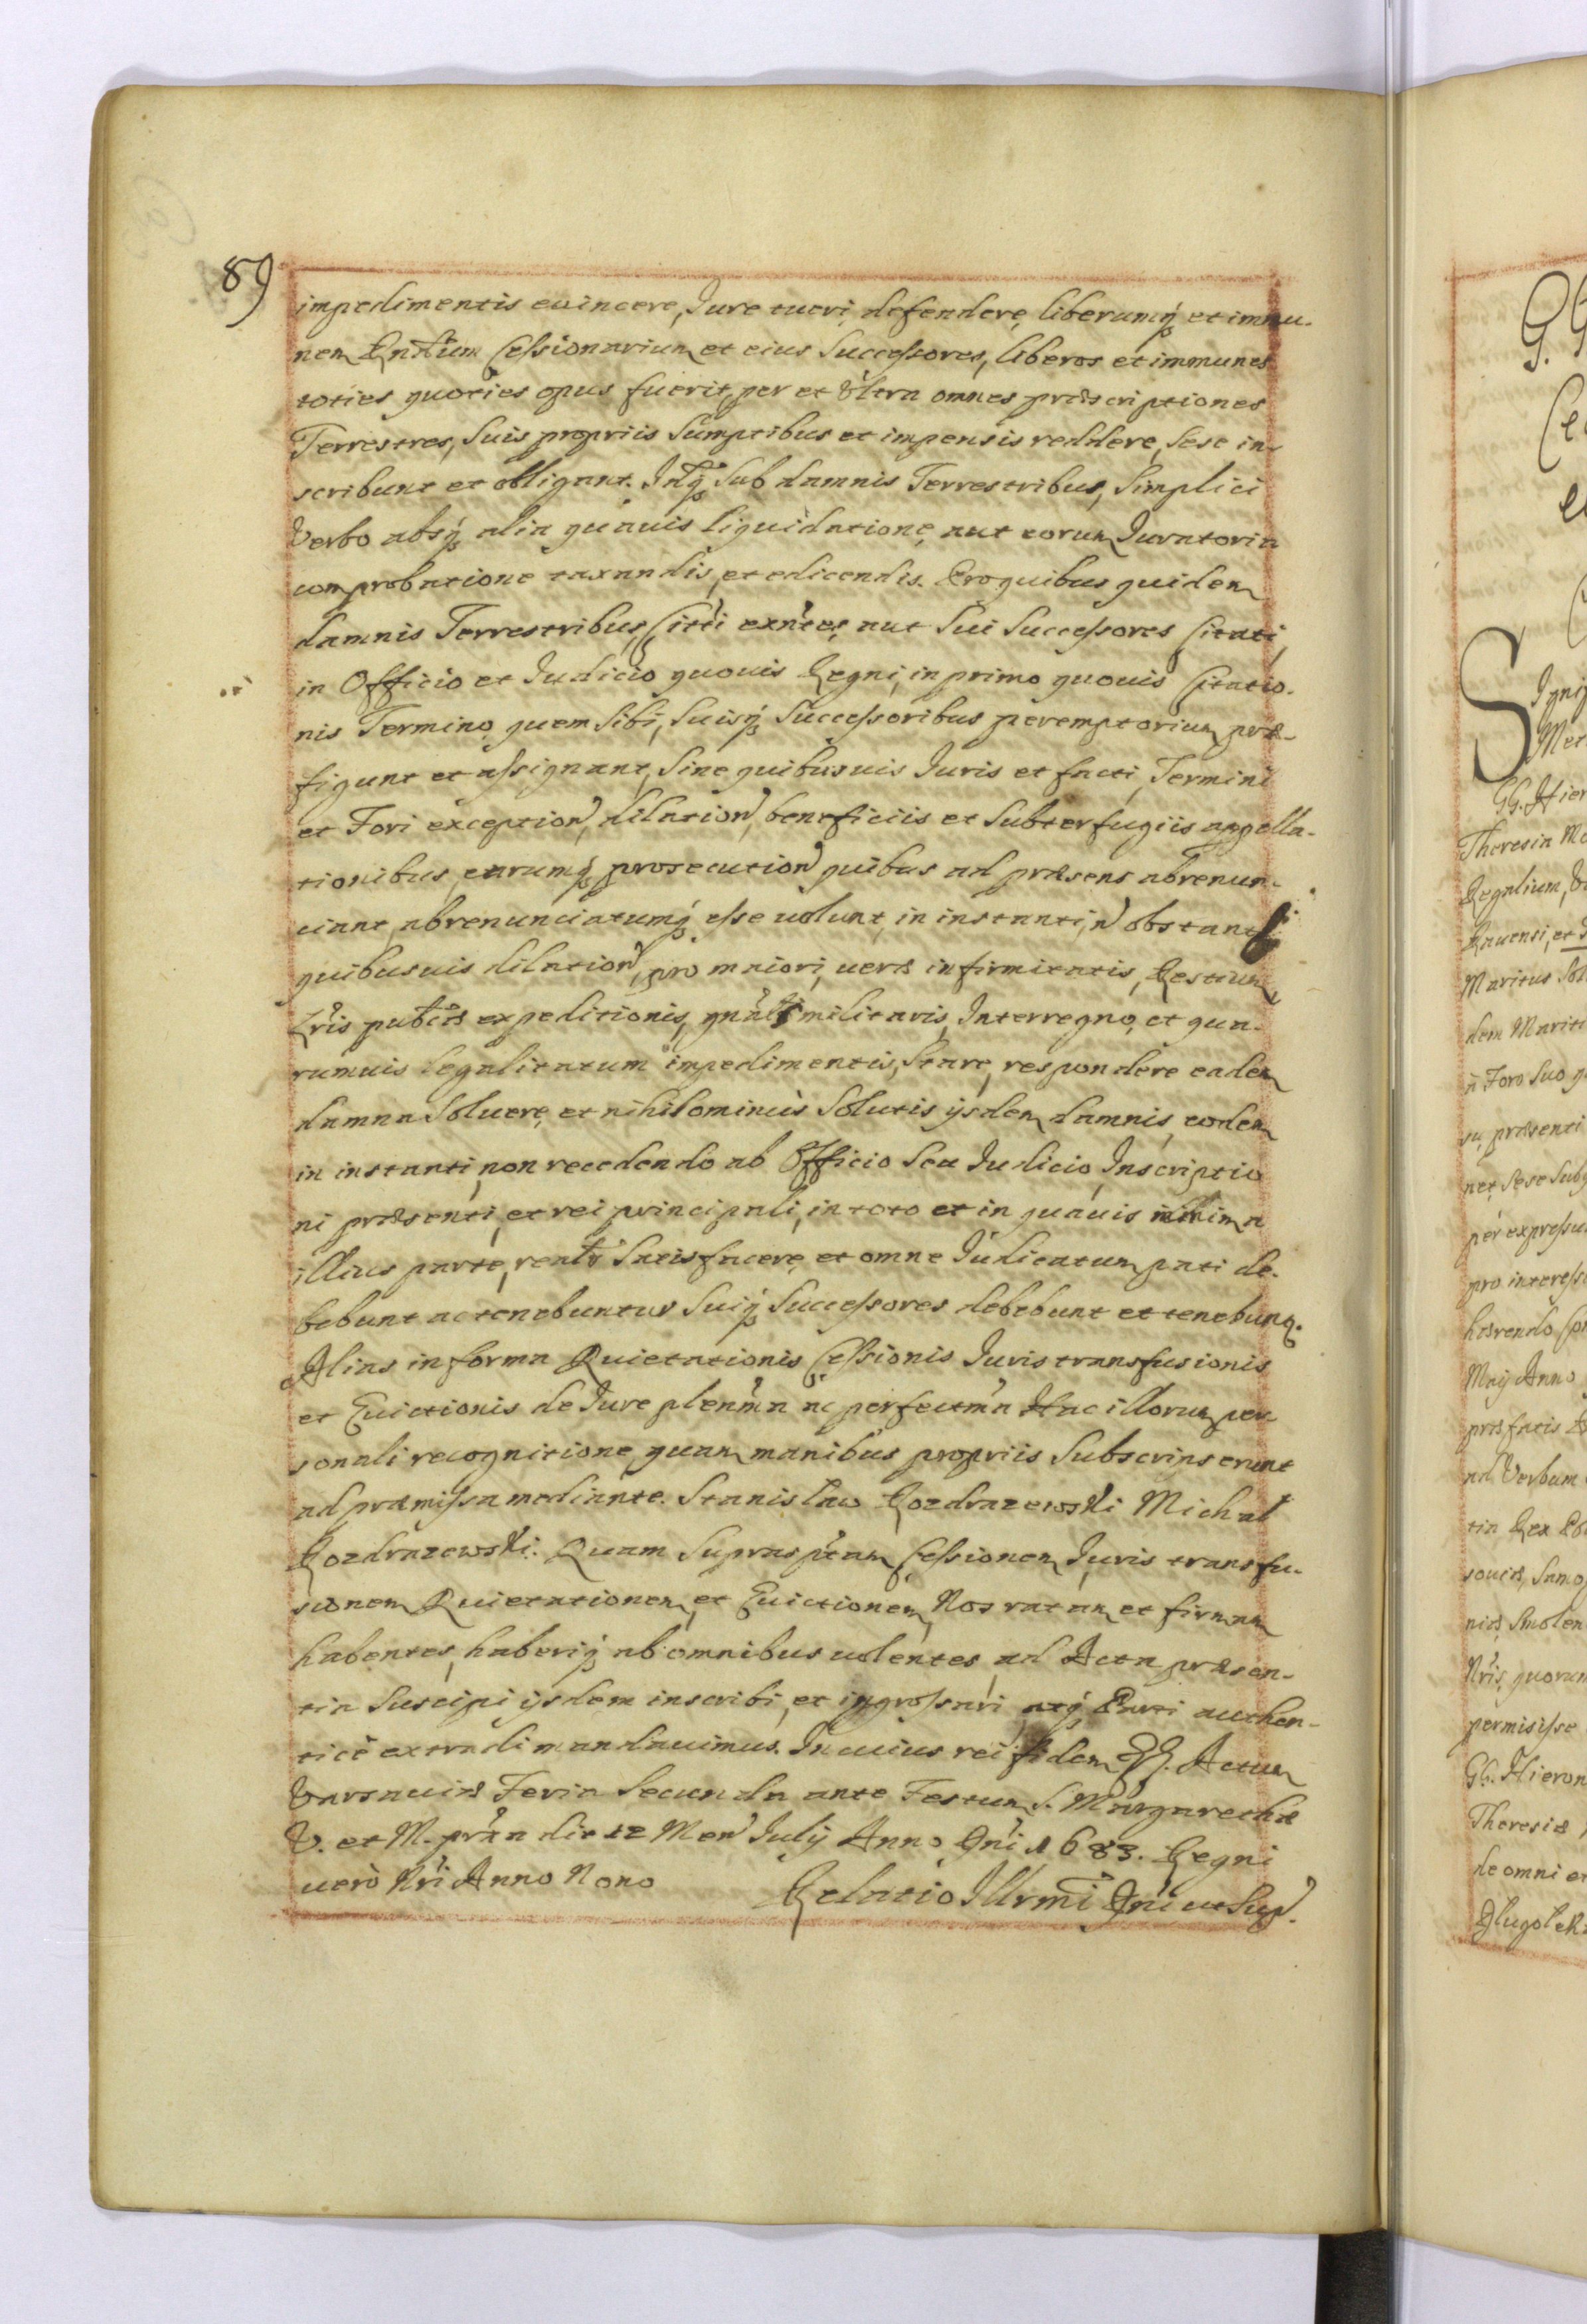 89
impedimentis euincere, Jure tueri, defendere, liberumq; et immu-
nem Cessionarium et eius Successores, liberos et immunes
toties quoties opus fuerit, per et Vltra omnes præscriptiones
Terrestres, Suis propriis Sumptibus et impensis reddere, Sese in-
scribunt et obligant. Idq; Sub damnis Terrestribus, Simplici
Verbo absq; alia quauis liquidatione, aut eorum Juratoria
comprobatione taxandis, et edicendis. Pro quibus quidem
damnis Terrestribus, Citti exñtes, aut Sui Successores Citati,
in Officio et Judicio quouis Regni, in primo quouis Citatio-
nis Termino, quem Sibi, Suisq; Successoribus peremptorium præ-
figunt et assignant, Sine quibusuis Juris et facti, Termini
et Fori exception, dilation, beneficiis et Subterfugiis appella-
tionibus, earumq; prosecution quibus ad præsens abrenun-
ciant, abrenunciatumq; esse uolunt, in instanti, ñ obstanti
quibusuis dilation, pro maiori, uera infirmitatis, Pestium
Xris publicæ expeditionis, gñalis militaris, Interregno, et qua-
rumuis legalitatum impedimentis, Stare, respondere eadem
damna Soluere, et nihilominùs Solutis ijsdem damnis, eodem
in instanti, non recedendo ab Officio Seu Judicio, Inscriptio
ni præsenti, et rei principali, in toto et in quauis minima
illius parte, realr Satisfacere, et omne Judicatum pati de-
bebunt ac tenebuntur Suiq; Successores debebunt et tenebunt.
Alias in forma Quietationis Cessionis Juris transfusionis
et Euictionis de Jure plenma ac perfectma Hac illorum per
sonali recognitione, quam manibus propriis Subscripserunt
ad præmissa mediante. Stanislaw Rozdrazewski Michal
Rozdrazewski. Quam Supraspctam Cessionem Juris transfu-
sionem Quietationem, et Euictionem, Nos ratam et firmam
habentes, haberiq; ab omnibus uolentes, ad Acta præsen-
tia Suscipi ijsdem inscribi, et ingrossari, atq; Parti authen-
ticè extradi mandauimus. In cuius rei fidem Actum
Varsauiæ Feria Secunda ante Festum S. Margarethæ
V. et M. prxa die 12 Men Julij Anno Dni 1683. Regni
uerò Nri Anno Nono
Relatio Illrmi Dni ut Sup.